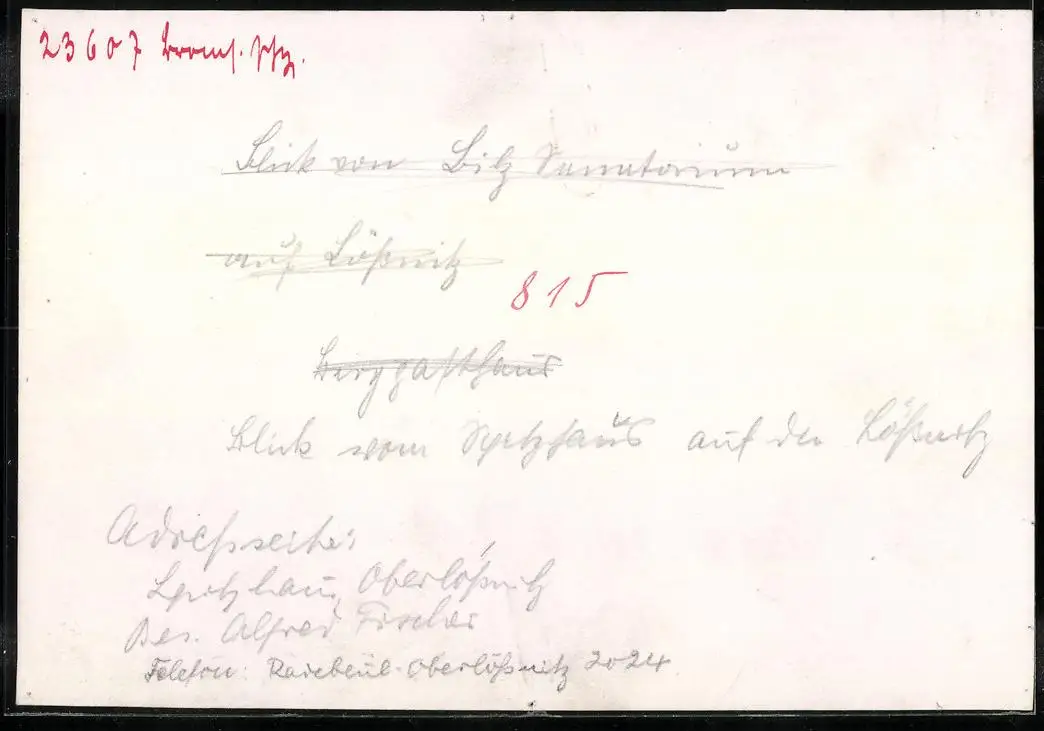 23607
Blick von Bilz Sanatorium
auf Lößnitz
815
Berggasthaus
Blick vom Spitzhaus auf die Lößnitz
Adressseite:
Spitzhaus Oberlößnitz
Bes. Alfred Fischer
Telefon: Radebeul-Oberlößnitz 2024.